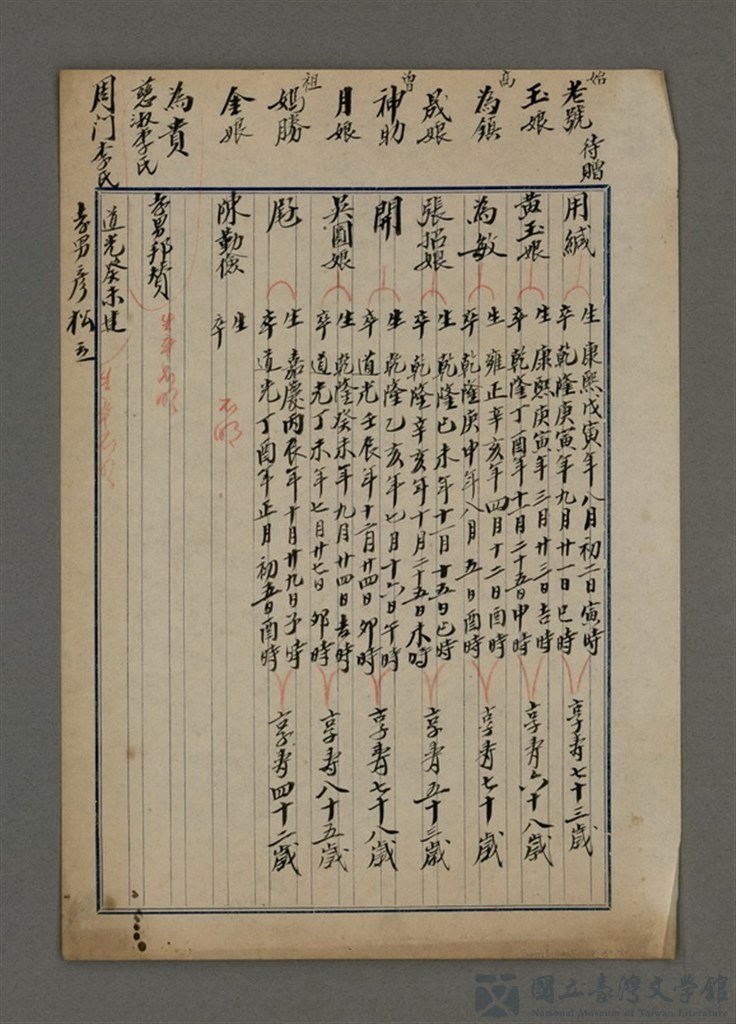 始
老號 待贈
用緘
生 康熙戊寅年八月初二日寅時
卒 乾隆庚寅年九月廿一日巳時
享壽七十三歲
玉娘
黃玉娘
生 康熙庚寅年三月廿三日吉時
卒 乾隆丁酉年十一月二十五日申時
享壽六十八歲
高
為鎮
為敏
生 雍正辛亥年四月十二日酉時
卒 乾隆庚申年八月五日酉時
享壽七十歲
晟娘
張招娘
生 乾隆己未年十一月十五日巳時
卒 乾隆辛亥年十月二十五日未時
享壽五十三歲
曾
神助
開
生 乾隆乙亥年七月十六日午時
卒 道光壬辰年十二月廿四日卯時
享壽七十八歲
月娘
吳圓娘
生 乾隆癸未年九月廿四日吉時
卒 道光丁未年七月廿七日卯時
享壽八十五歲
祖
媽勝
生 嘉慶丙辰年十月廿九日子時
卒 道光丁酉年正月初五日酉時
享壽四十二歲
金娘
陳勤儉
生
卒
不明
為貴
慈淑李氏
孝男邦贊
生卒不明
周门李氏
道光癸未建
生卒不明
孝男彥松立
國立臺灣文學館
National Museum of Taiwan Literature